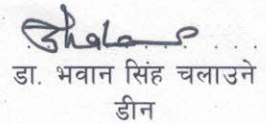 डा. भवान सिंह चलाउने
डीन